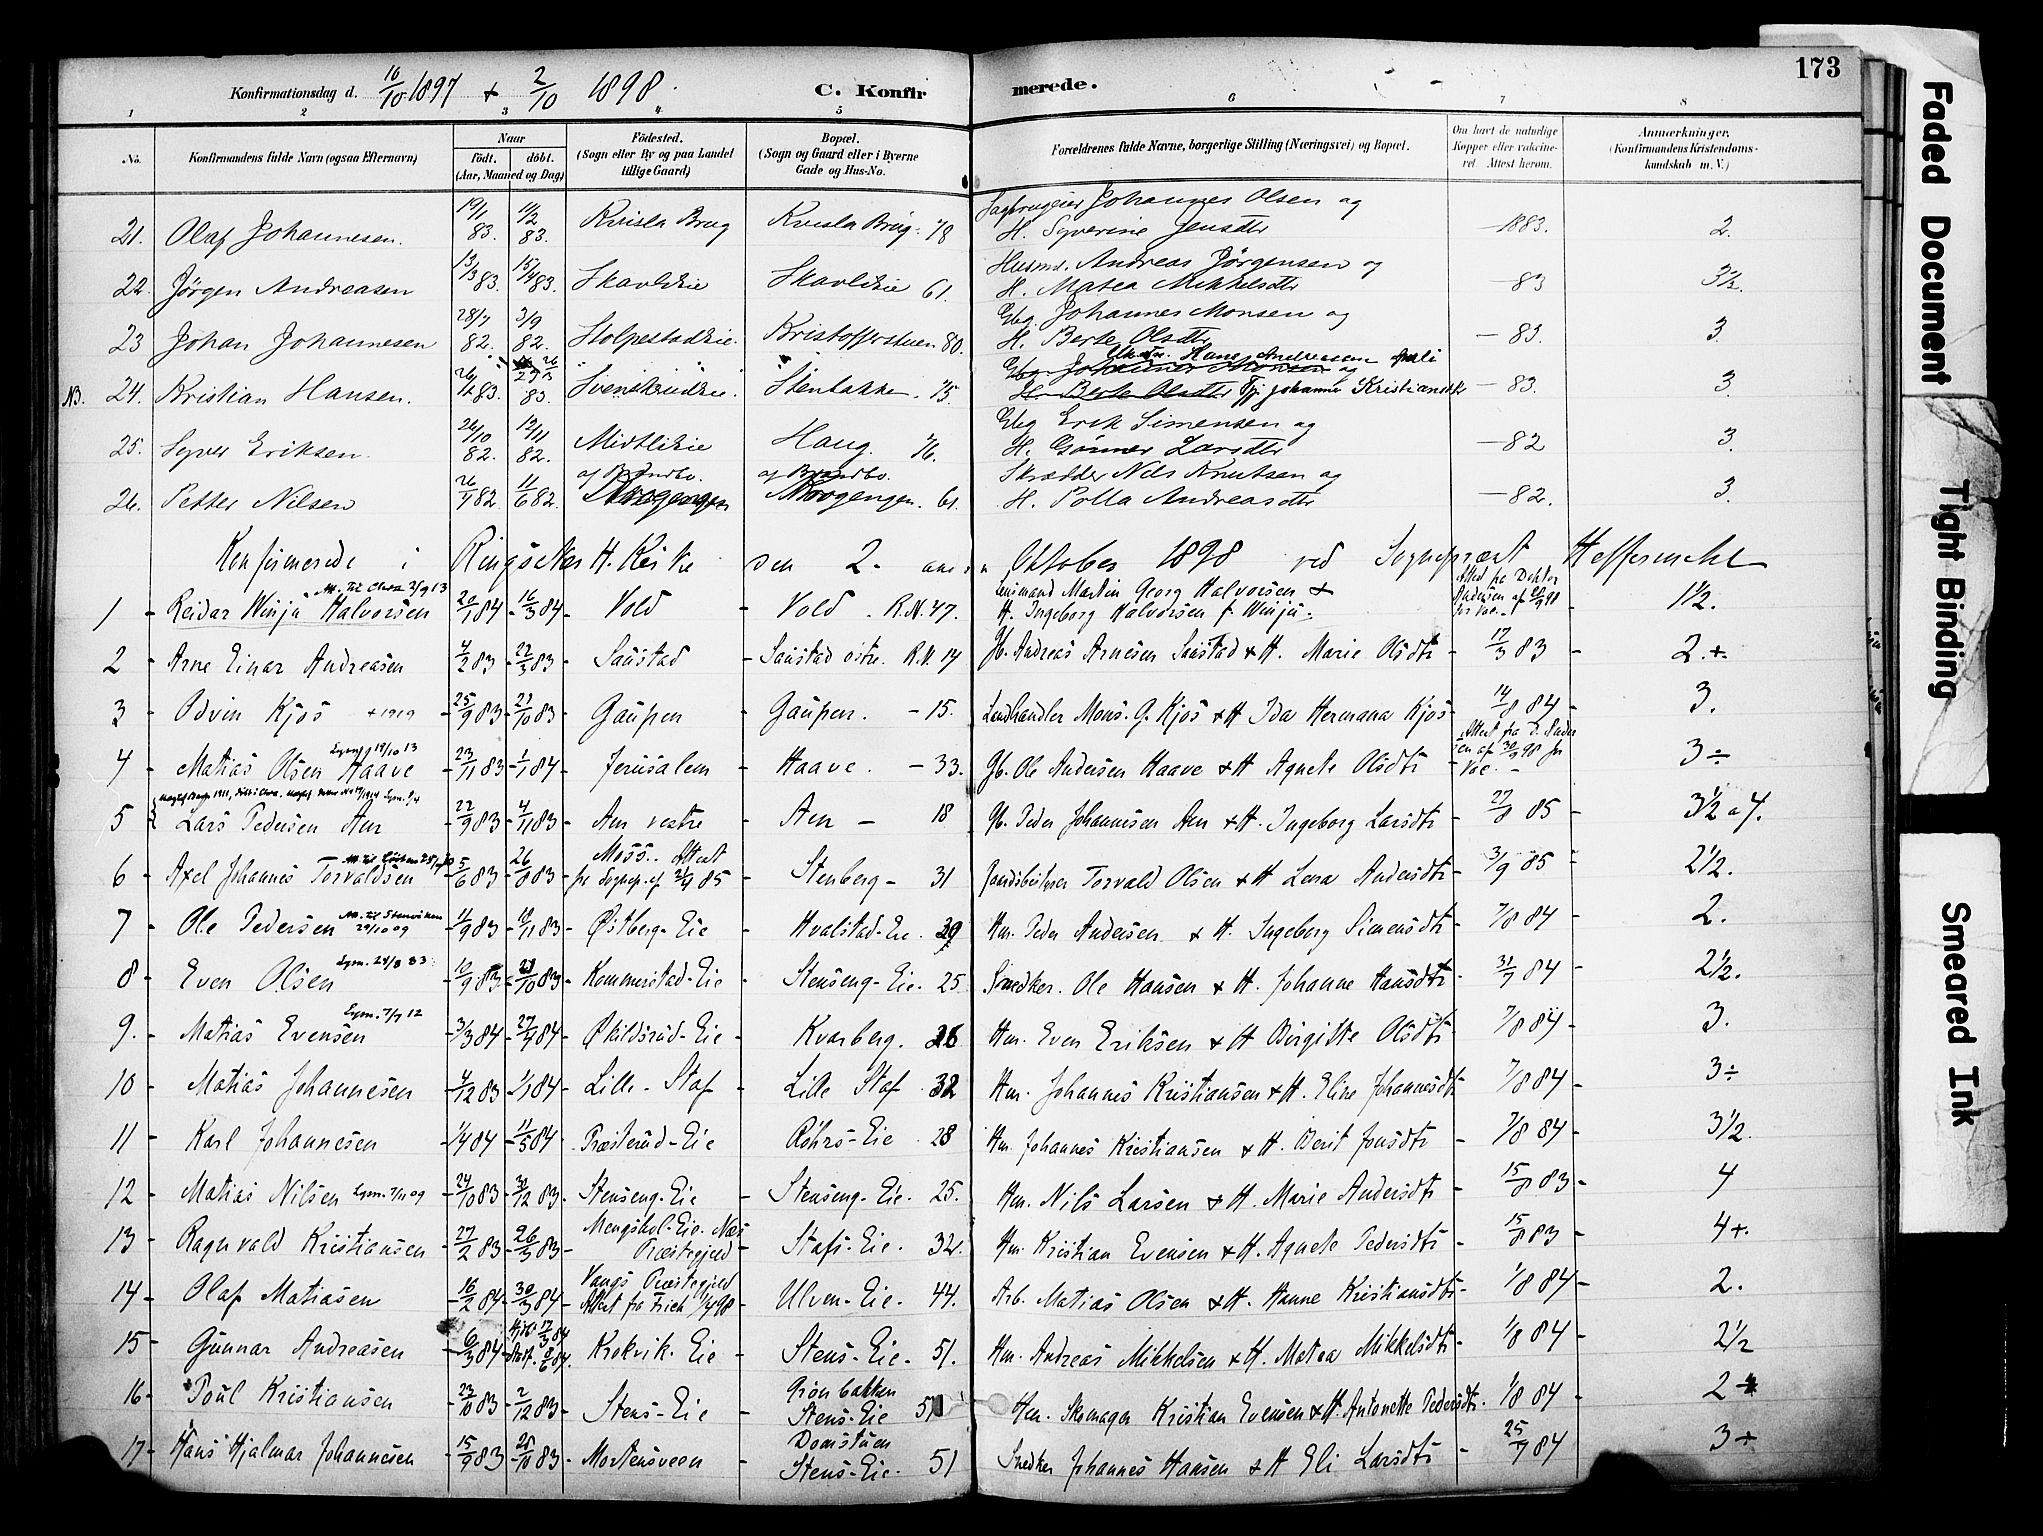 173
Konfirmationsdag d. 10/10 1897 + 2/10 1898. C. Konfirmerede.
1 2 3 4 5 6 7 8
No. Konfirmandens fulde Navn (ogsaa Efternavn) Naar født. døbt. (Aar, Maaned og Dag) Födested. (Sogn eller By og paa Landet tillige Gaard) Bopæl. (Sogn og Gaard eller i Byerne Gade og Hus-No. Forældrenes fulde Navne, borgerlige Stilling (Næringsvei) og Bopæl. Om havt de naturlige Kopper eller vakcineret. Attest herom. Anmærkninger. (Konfirmandens Kristendomskundskab m. V.)
21. Olaf Johannesen. 19/1 83. 11/2 83. Kvisla Brug Kvisla Brug 78 Sagbrugeier Johannes Olsen og H. Syverine Jensdtr - 1883. 2.
22. Jørgen Andreasen 13/3 83. 15/4 83. Skavldeie Skavldeie 61. Husmd. Andreas Jørgensen og H. Matea Mikkelsdtr - 83 3½.
23 Johan Johannesen 28/7 82. 3/9 82. Stolpestadeie. Kristofferstuen 80. Gbg Johannes Monsen og H. Berte Olsdtr - 83. 3.
NB. 24. Kristian Hansen. 26/12 83. 83. Svenskrudeie. Stenbakken. 75. Hans Andreasen Tj. Johanne Kristiansdtr - 83. 3.
25. Syver Eriksen. 26/10 82. 19/11 82. Midtlieie Haug. 76. Gbg Erik Simensen og H. Gunner Larsdtr - 82 3.
26. Petter Nilsen 26/4 82 11/6 82. Skrædder Nils Knutsen og H. Polla Andreasdtr - 82. 3.
Konfirmerede i Ringsaker H. Kirke den 2. Oktober 1898 ved Sognepræst Heffermehl
1 - Reidar Winju Halvorsen 20/1 84 - 16/3 84 - Vold - Vold. R.N. 47. Lensmand Martin Georg Halvorsen + H. Ingeborg Halvorsen f. Winju. Attest fra Doktor Andersen 1½.
2 - Arne Einar Andreasen 4/2 83 - 22/3 83 - Saustad - Saustad østre. R.N. 14 Gb. Andreas Arnesen Saustad + H. Marie Olsdtr - 17/3 83 - 2.+.
3 - Odvin Kjos + 1919 25/9 83 - 21/10 83 - Gaupen - Gaupen. - 15. Landhandler Mons. G. Kjos + H Ida Hermana Kjos - 14/8 84 - 3.
4 - Matias Olsen Haave Lysn. 19/10 13 - 23/11 83 - 1/1 84 - Jerusalem - Haave. - 33. Gb. Ole Andersen Haave + H Agnete Olsdtr - 3÷
5 - Lars Pedersen Aen 22/9 83 - 4/11 83 - Aen vestre - Aen - 18 Gb. Peder Johannesen Aen + H. Ingeborg Larsdtr - 27/8 85 - 3½ a 4.
6 - Axel Johannes Torvaldsen - 5/6 83 - 26/8 83 - Moss. Attest fr Sognep. 85 - Stenberg - 31 Gaardsbestyrer Torvald Olsen + H Lena Andersdtr - 3/9 85 - 2½.
7 - Ole Pedersen 29/10 09 - 11/9 83 - 18/11 83 - Østberg-Eie - Hvalstad-Eie. 29 Hm. Peder Andersen + H. Ingeborg Simensdtr - 7/8 84 - 2.
8 - Even Olsen Lysn. 24/8 83 - 10/9 83 - 21/10 83 - Kommerstad-Eie - Stenseng-Eie. 25 Snedker. Ole Hansen + H. Johanne Hansdtr - 31/7 84 - 2½.
9. - Matias Evensen Lysn. 7/7 12 - 3/3 84 - 27/4 84 - Økildsrud-Eie - Kvarberg. 26 Hm. Even Eriksen + H Birgitte Olsdtr - 7/8 84 - 3.
10 - Matias Johannesen - 4/12 83 - 1/1 84 - Lille-Staf - Lille Staf 32 Hm. Johannes Kristiansen + H. Eline Johannesdtr 7/8 84 - 3÷
11 - Karl Johannesen - 1/4 84 - 11/5 84 - Præsterud-Eie - Røhrs-Eie 28 Hm. Johannes Kristiansen + H. Berit Jonsdtr - 7/8 84 - 3½.
12 - Matias Nilsen Lysn. 7/11 09 - 24/10 83 - 30/12 83 - Stenseng-Eie - Stenseng-Eie. 25. Hm. Nils Larsen + H. Marie Andersdtr - 15/8 83 - 4
13 - Ragnvald Kristiansen - 27/2 83 - 26/3 83 - Mengshol-Eie. Næs Præstegjeld - Stafs-Eie. 32. Hm. Kristian Evensen + H. Agnete Pedersdtr - 15/8 83 - 4+.
14 - Olaf Matiasen - 16/2 84 - 30/3 84 - Vangs Præstegjeld Attest fra Frich 1/4 98 - Ulven-Eie. 44. Arb. Matias Olsen + H. Hanne Kristiansdtr - 1/8 84 - 2.
15 - Gunnar Andreasen - 6/3 84 - Hjdb. 17/3 84 Stadf. 8/6 84. Krokvik-Eie - Stens-Eie. 51. Hm. Andreas Mikkelsen + H. Matea Mikkelsdtr - 1/8 84 - 2½
16 - Poul Kristiansen - 23/10 83 - 2/12 83 - Stens-Eie - Grønbakken Stens-Eie 51 Hm. Skomager Kristian Evensen + H. Antonette Pedersdtr. 1/8 84 - 2
17 - Hans Hjalmar Johannesen - 15/9 83 - 28/10 83 - Mortensveen - Domstuen Stens-Eie. 51 Snedker Johannes Hansen + H Eli Larsdtr - 25/7 84 - 3+
Faded Document
Tight Binding
Smeared Ink